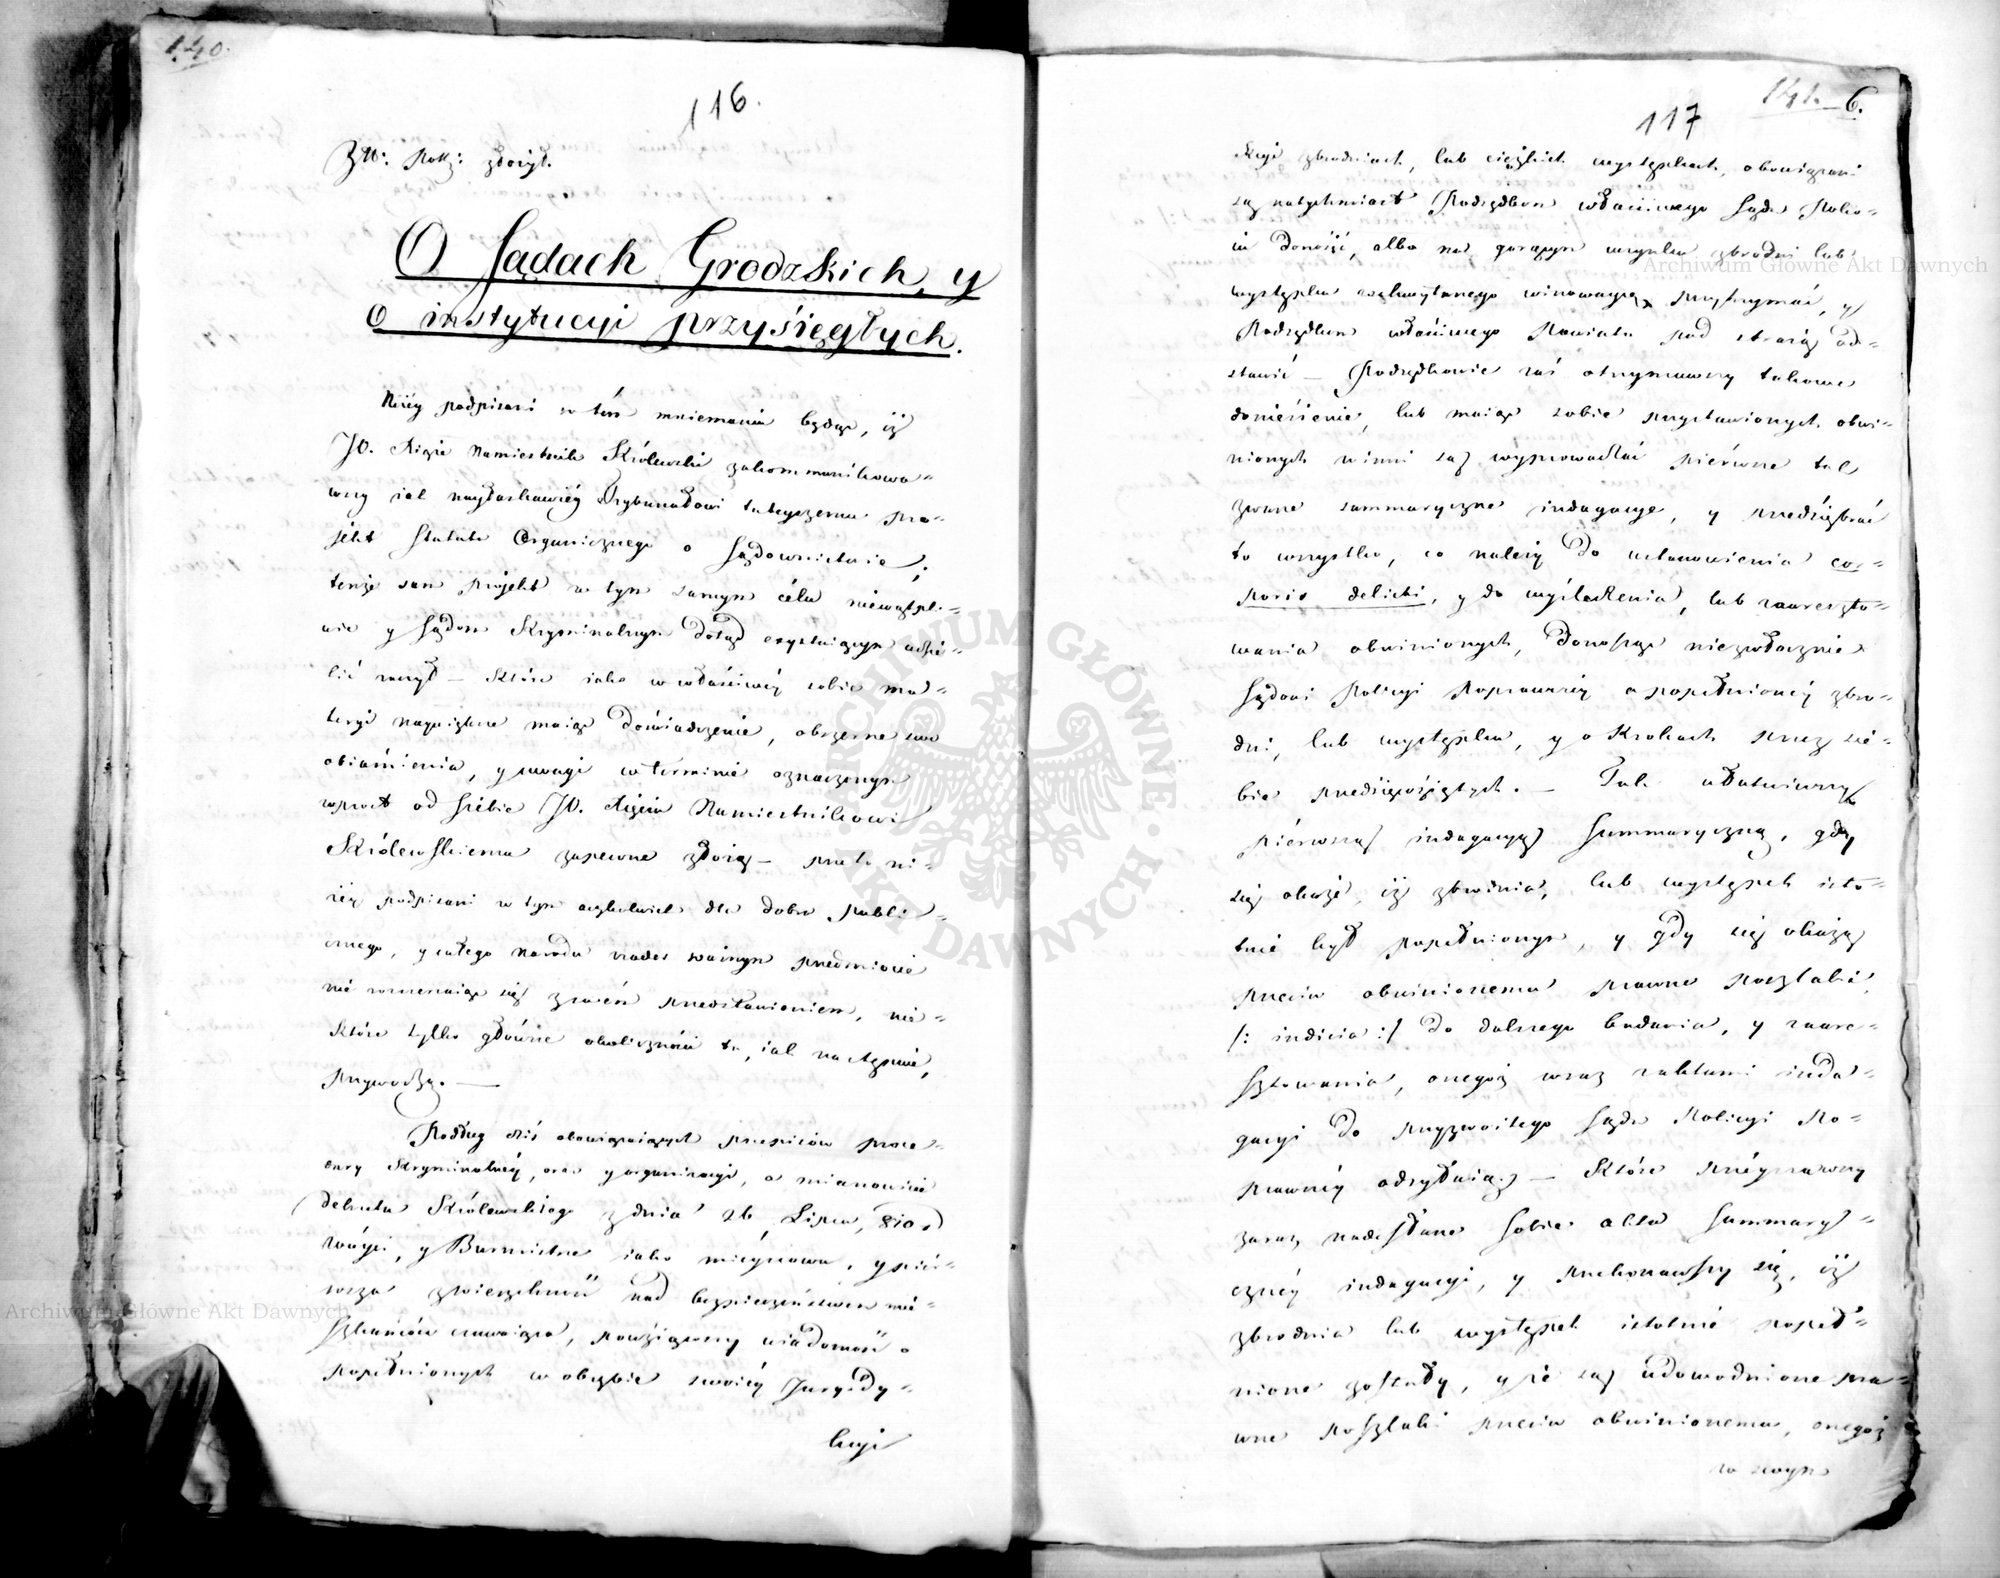 140.
116.
O Sądach Grodzkich, y
o instytucyi przysięgłych.
Niżéy podpisani w tém mniemaniu będąc, iż
JO. Xiąże Namiestnik Królewski zakommunikowa=
wszy iak nayłaskawiéy Trybunałowi tuteyszemu Pro=
jekt Statutu Organicznego o Sądownictwie;
tenże sam projekt w tym samym célu niewątpli=
wie y Sądom Kryminalnym dotąd exystuiącym udzie=
lić raczył — które iako w właściwéy sobie ma=
teryi naywiększe maiąc doświadczenie, obszerne swe
obiaśnienia, y uwagi w terminie oznaczonym
wprost od siebie JO. Xięciu Namiestnikowi
Królewskiemu zapewne złożą — przeto ni=
żéy podpisani w tym aczkolwiek dla dobra publi=
cznego, y całego narodu nader ważnym przedmiocie
nie rozszerzaiąc się z swém przedstawieniem, nie=
które tylko główne okoliczności tu, iak następuie,
przywodzą. —
Podług dziś obowiązuiących przepisów proce=
dury Kryminalnéy, oraz y organizacyi, a mianowicie
dekretu Królewskiego z dnia 26 Lipca, 810 r
Wóyci, y Burmistrze iako mieyscowa, y pier=
wsza zwierzchność nad bezpieczeństwem mie=
szkańców czuwaiąca, powziąwszy wiadomość o
popełnionych w obrębie swoiéy Jurysdy=
kcyi
141. 6.
117
kcyi zbrodniach, lub ciężkich występkach, obowiązani
są natychmiast Podsędkom właściwego Sądu Poko=
iu donosić, albo na gorącym uczynku zbrodni lub
występku schwytanego winowaycę przytrzymać, y
Podsędkom właściwego Powiatu pod strażą od=
stawić — Podsędkowie zaś otrzymawszy takowe
doniesienie, lub maiąc sobie przystawionych obwi=
nionych winni są wyprowadzać piérwsze tak
zwane summaryczne indagacye, y przedsiębrać
to wszystko, co należy do ustanowienia cor=
poris delicti, y do wyśledzenia, lub zaareszto=
wania obwinionych, donosząc niezwłocznie
Sądowi Policyi Poprawczéy o popełnionéy zbro=
dni, lub występku, y o krokach przez sie=
bie przedsięwziętych. — Tak ułatwiwszy
piérwszą indagacyą Summaryczną, gdy
się okaże, iż zbrodnia, lub występek isto=
tnie był popełnionym, y gdy się okażą
przeciw obwinionemu prawne poszlaki
/: indicia :/ do dalszego badania, y zaare=
sztowania, onegoż wraz z aktami inda=
gacyi do przyzwoitego Sądu Policyi Po=
prawczéy odsyłaią — które przéyrzawszy
zaraz nadesłane sobie akta Summary=
cznéy indagacyi, y przekonawszy się, iż
zbrodnia lub występek istotnie popeł=
nione zostały, y że są udowodnione pra=
wne poszlaki przeciw obwinionemu, onegoż
w swym
ARCHIWUM GŁÓWNE AKT DAWNYCH
Archiwum Główne Akt Dawnych
Archiwum Główne Akt Dawnych